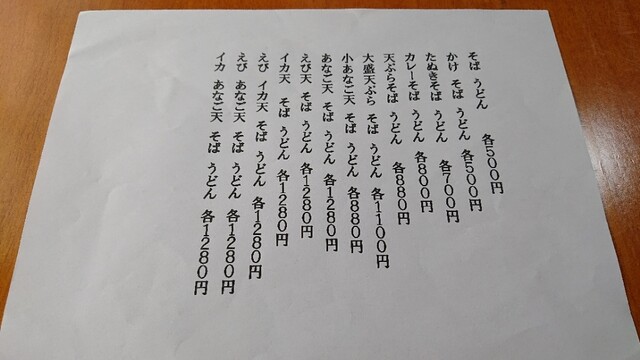 そば うどん 各500円
かけ そば うどん 各500円
たぬきそば うどん 各700円
カレーそば うどん 各800円
天ぷらそば うどん 各880円
大盛天ぷら そば うどん 各1100円
小あなご天 そば うどん 各880円
あなご天 そば うどん 各1280円
えび天 そば うどん 各1280円
イカ天 そば うどん 各1280円
えび イカ天 そば うどん 各1280円
えび あなご天 そば うどん 各1280円
イカ あなご天 そば うどん 各1280円